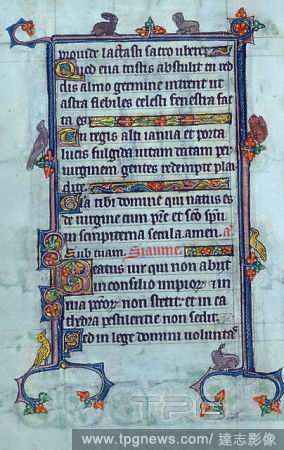 prouide lactasti sacro ubere.
Quod eua tristis abstulit tu red
dis almo germine intrent ut
astra flebiles celesti fenestra fac
ta es
Tu regis alti ianua et porta
lucis fulgida uitam datam per
uirginem gentes redempte plau
dite.
Gloria tibi domine qui natus es
de uirgine cum pr̄e et sc̄o spū
in sempiterna secula amen. a.
Sub tuam. Siaume.
Beatus uir qui non abijt
in consilio impior̄ ⁊ in
uia pctōr̄ non stetit: et in ca
thedra pestilentie non sedit.
Sed in lege domini uolunta
TPG
www.tpgnews.com/達志影像